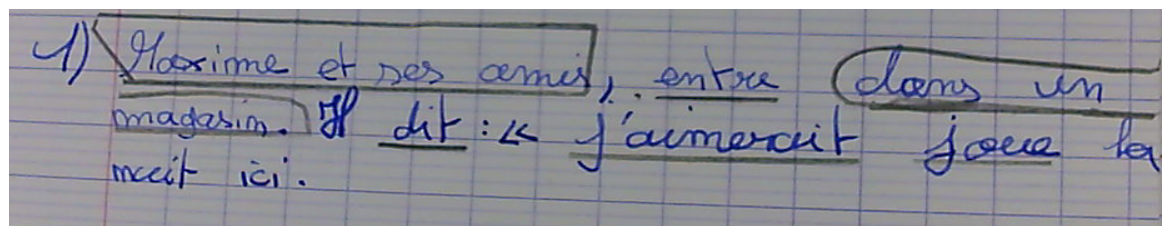 1) Maxime et ses amis, entre dans un
magasin. Il dit : « j'aimerait joue la
nuit ici.